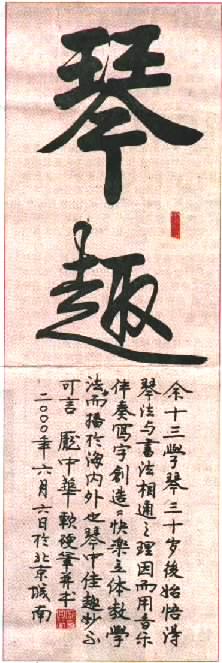 琴趣
余十三學琴三十岁後始悟得
琴法与書法相通之理因而用音乐
伴奏寫字創造"快樂立体教學
法"而播於海内外也琴中佳趣妙不
可言 龐中華 軟硬筆并书
二000年六月六日於北京城南